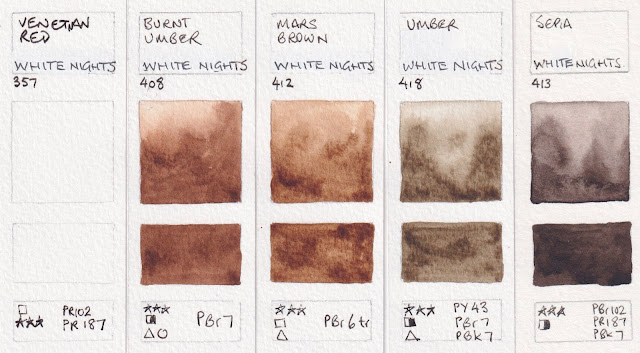 VENETIAN
RED
WHITE NIGHTS
357
PR102
PR187
BURNT
UMBER
WHITE NIGHTS
408
PBr7
MARS
BROWN
WHITE NIGHTS
412
PBr6tr
UMBER
WHITE NIGHTS
418
PY43
PBr7
PBk7
SEPIA
WHITE NIGHTS
413
PBr102
PR187
PBk7